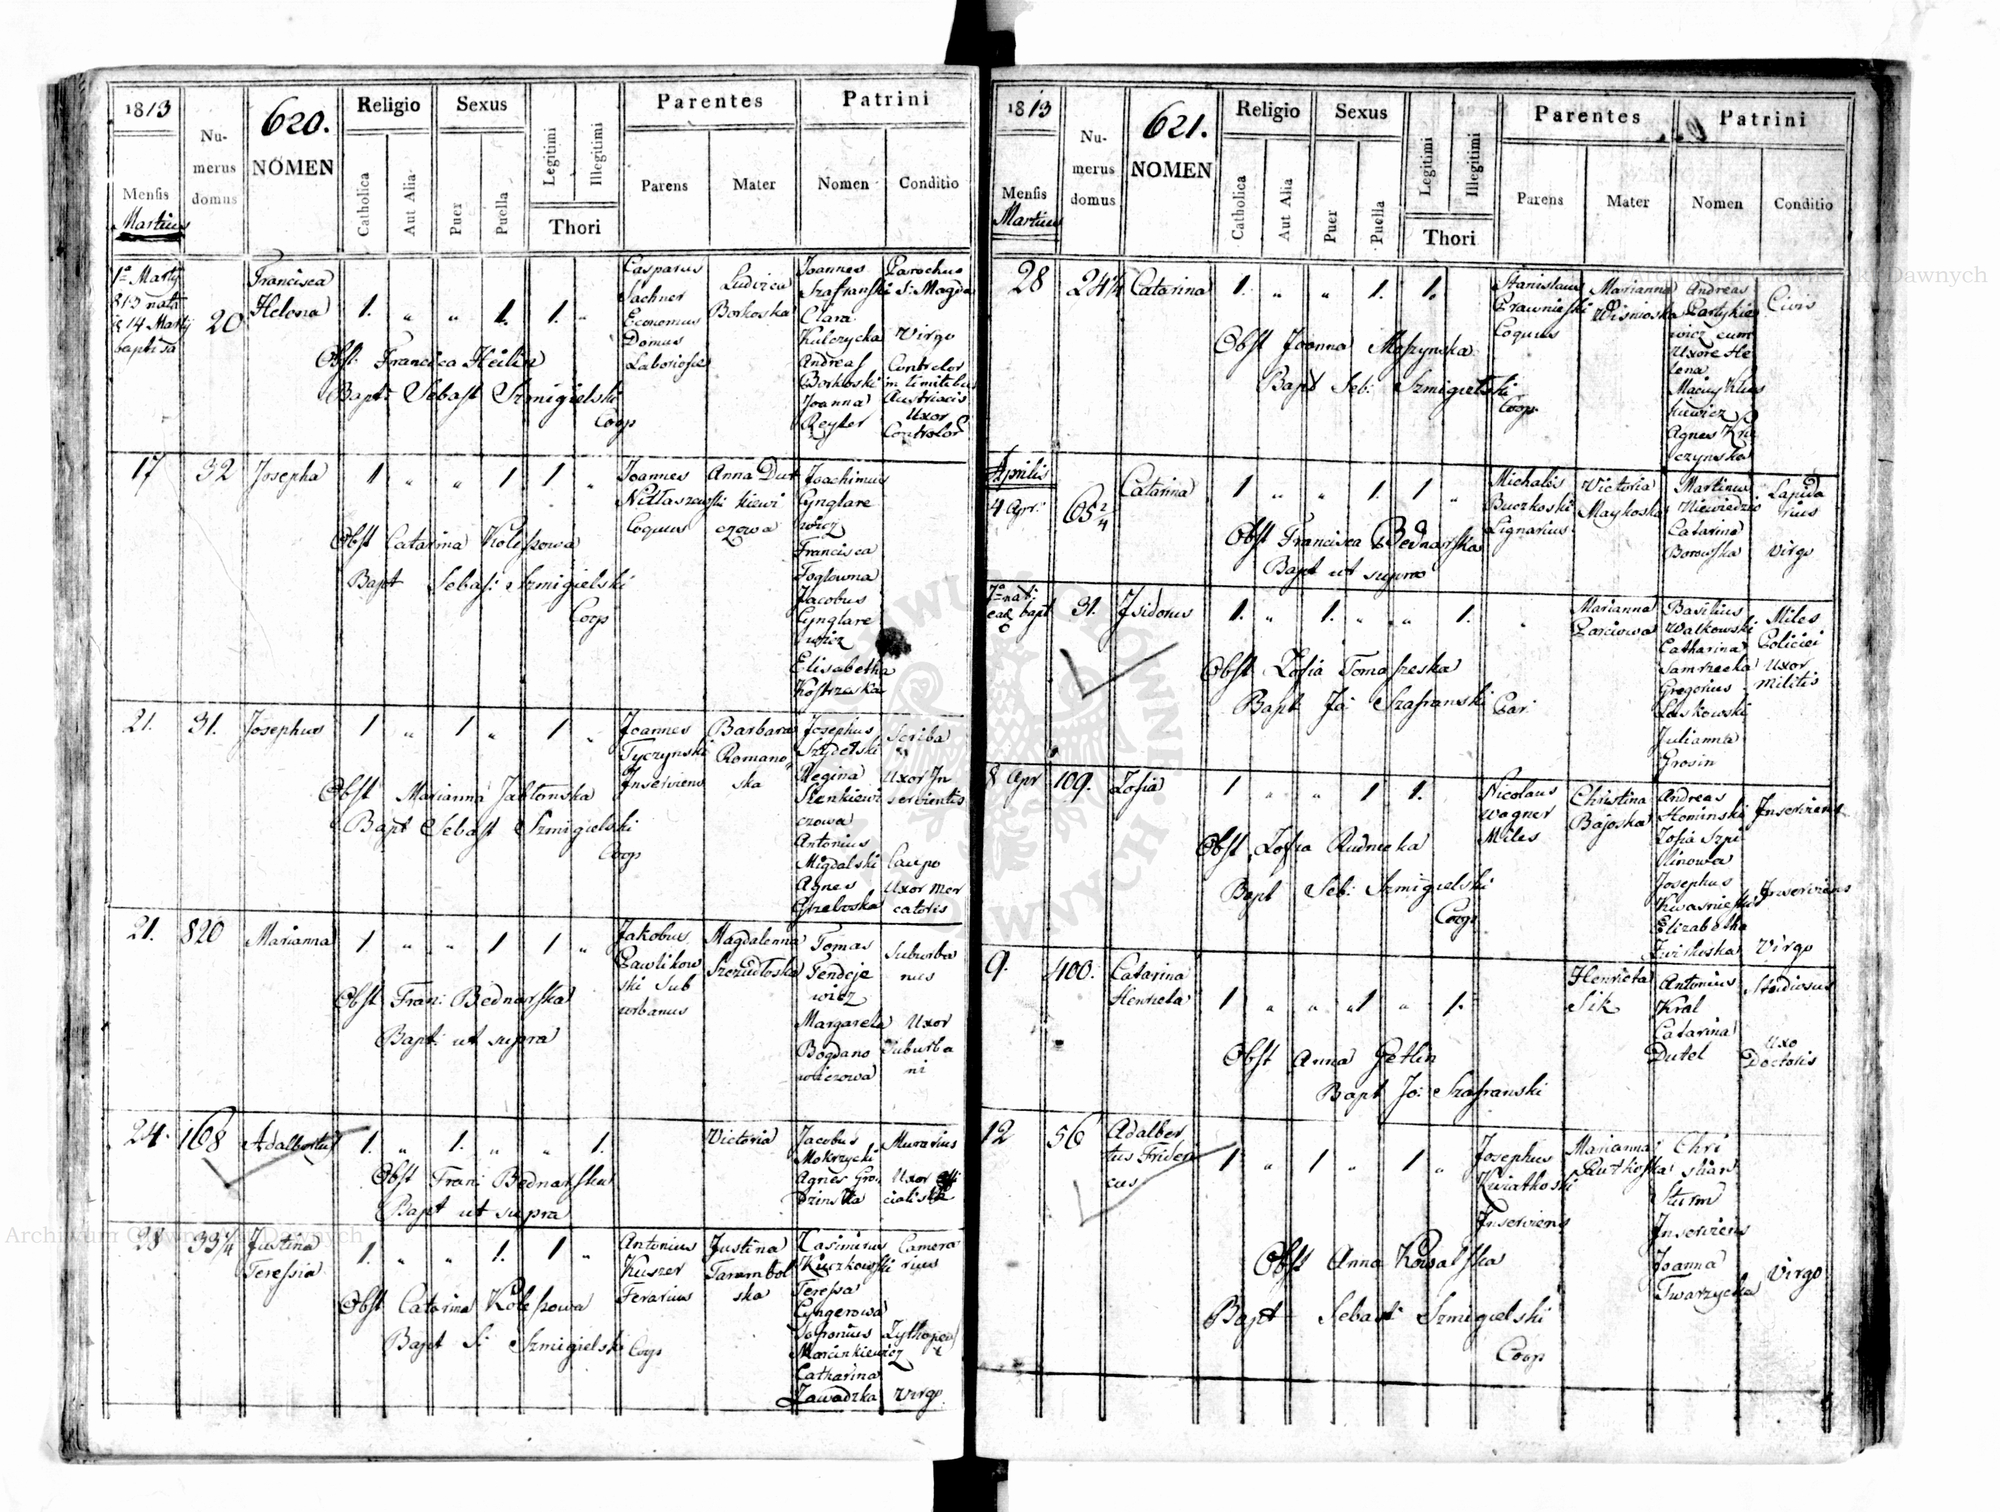 1813
Numerus domus
620.
NOMEN
Religio
Sexus
Legitimi
Illegitimi
Thori
Parentes
Patrini
Mensis
Martius
Catholica
Aut Alia
Puer
Puella
Parens
Mater
Nomen
Conditio
20
Francisca
Helena
1. „ „ 1. 1. „
Casparus
Economus
Domus
Ludvica
Borkoska
Joannes
Szafranski
Clara
Kulczycka
Andreas
Borkoski
Joanna
Reyher
Parochus
S: Magda
Virgo
Controlor
in limitibus
Austriacis
Uxor
Obst Francisca
Bapt: Sebast Szmigielski
Coop
17 32 Josepha 1 „ „ 1 1 „
Joannes
Coquus
Anna Dut
kiewi
czowa
Joachimus
Cynglare
wicz
Francisca
Jacobus
Cynglare
wicz
Elisabetha
Kostrzeska
Obst Catarina Kolessowa
Bapt Sebas: Szmigielski
Coop
21. 31. Josephus 1 „ 1 „ 1 „
Joannes
Tyczynski
Inserviens
Barbara
Romano
ska
Josephus
Szydelski
Regina
Sienkiewi
czowa
Antonius
Migdalski
Agnes
Grzeboska
Scriba
Uxor In
servientis
Caupo
Uxor mer
catoris
Obst Marianna Jablonska
Bapt Sebast Szmigielski
Coop
21. 820 Marianna 1 „ „ 1 1 „
Jakobus
Pawlikow
ski Sub
urbanus
Magdalenna
Szczudloska
Tomas
Fendeje
wicz
Margareta
Bogdano
wiczowa
Suburba
nus
Uxor
Suburba
ni
Obst Fran: Bednarska
Bapt: ut supra
24. 168 Adalbertus 1. „ 1. „ „ 1.
Victoria
Jacobus
Mokrzycki
Agnes Gro
dzinska
Murarius
Uxor
Obst Fran: Bednarska
Bapt ut supra
28 33¼ Justina
Teressia
1. „ „ 1. 1 „
Antonius
Kuszer
Ferarius
Justina
Tarambol
ska
Casimirus
Kuczkowski
Teressa
Cyngerowa
Marcinkiewicz
Catharina
Zawadzka
Camera
rius
Virgo
Obst Catarina Kolessowa
Bapt S: Szmigielski Coop
1813
Numerus domus
621.
NOMEN
Religio
Sexus
Legitimi
Illegitimi
Thori
Parentes
Patrini
Mensis
Martius
Catholica
Aut Alia
Puer
Puella
Parens
Mater
Nomen
Conditio
28 244 Catarina 1. „ „ 1. 1.
Stanislaus
Prawnieski
Coquus
Marianna
Wisnioska
Andreas
Partykie
wicz cum
Uxore He
lena
Maciey Klus
kiewicz
Agnes Kru
czynska
Civis
Obst Joanna Moszynska
Bapt Seb: Szmigielski
Coop
Aprilis
4 Apr:
Catarina 1 „ „ 1. 1 „
Michalis
Buczkoski
Lignarius
Victoria
Maykoska
Martinus
Niewiedzio
Catarina
Borowska
Lapida
rius
Virgo
Obst Francisca Bednarska
Bapt ut supra
31. Isidorus 1. „ 1. „ „ 1.
Marianna
Parciowa
Basilius
Walkowski
Catharina
Gregorius
Laskowski
Julianna
Grosin
Miles
Policiei
Uxor
Militis
Obst Zofia Tomaszeska
Bapt Jo: Szafranski Par:
8 Apr 109. Zofia 1 „ „ 1 1.
Nicolaus
Wagner
Miles
Christina
Bajoska
Andreas
Slominski
Zofia Szpi
linowa
Josephus
Kwasnieski
Elizabetha
Inserviens
Inserviens
Virgo
Obst Zofia Rudnicka
Bapt Seb: Szmigielski
Coop
9. 400. Catarina
Henrieta
1 „ „ 1 „ 1.
Henrieta
Sik
Antonius
Kral
Catarina
Dutel
Studiosus
Uxo
Doctoris
Obst Anna Getlin
Bapt Jo: Szafranski
12 56 Adalber
tus Frideri
cus
1 „ 1 „ 1 „
Josephus
Kwiatkoski
Inserviens
Marianna
Chri
stian
Sturm
Inserviens
Joanna
Twarzycka
Virgo
Obst Anna Kowalska
Bapt Sebast: Szmigielski
Coop
Archiwum Główne Akt Dawnych
Archiwum Główne Akt Dawnych